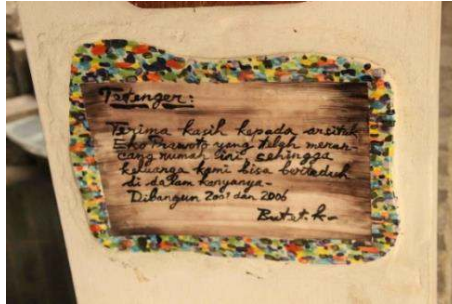 Tetenger:
Terima kasih kepada arsitek
Eko Prawoto yang telah meran-
cang rumah ini sehingga
keluarga kami bisa berteduh
di dalam karyanya-
Dibangun 2001 dan 2006
Butet.k-